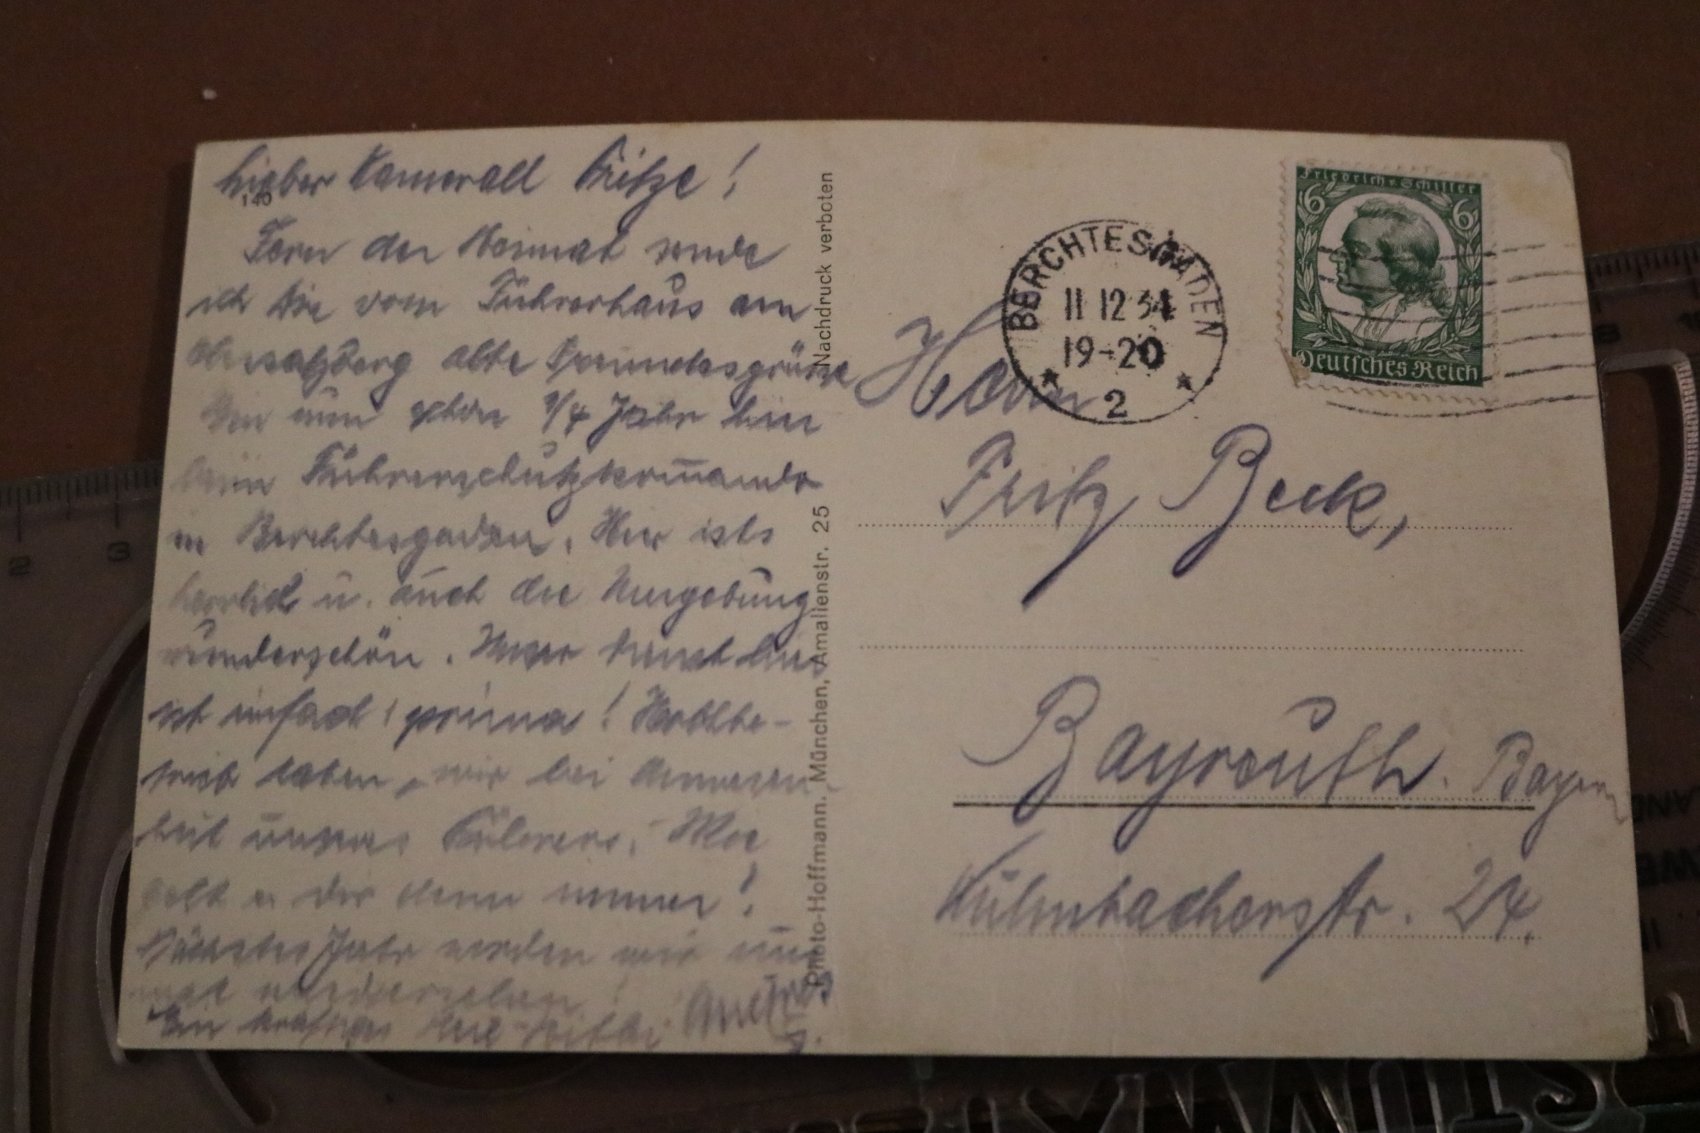 Lieber Kamerad Fritze!
140
Fern der Heimat sende
ich Dir vom Führerhaus am
Obersalzberg alte Freundesgrüße
Bin nun schon 3/4 Jahr hier
beim Führerschutzkommando
in Berchtesgaden. Hier ists
herrlich u. auch die Umgebung
wunderschön. Unser Dienst hier
ist einfach prima! Hochbe-
trieb haben wir bei Anwesen-
heit unseres Führers. Wie
geht es Dir denn immer?
Nächstes Jahr werden wir uns
mal wiedersehen!
Ein kräftiges Heil-Hitler
Nachdruck verboten
Photo-Hoffmann. München, Amalienstr. 25
BERCHTESGADEN
11 12 34
19-20
2
Friedrich v. Schiller
6 6
Deutsches Reich
Herrn
Fritz Beck,
Bayreuth. Bayern
Kulmbacherstr. 24.
2 3